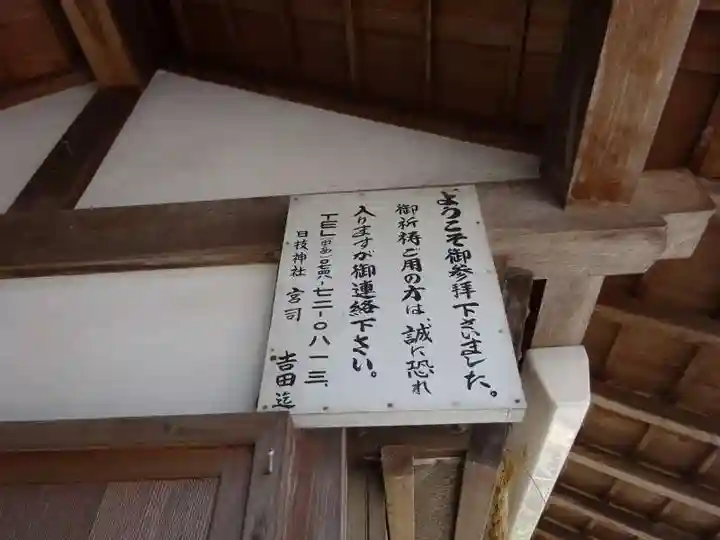 ようこそ御参拝下さいました。
御祈祷ご用の方は、誠に恐れ
入りますが御連絡下さい。
TEL(由為)〇四八一七二一〇八一三、
日枝神社 宮司 吉田 迄